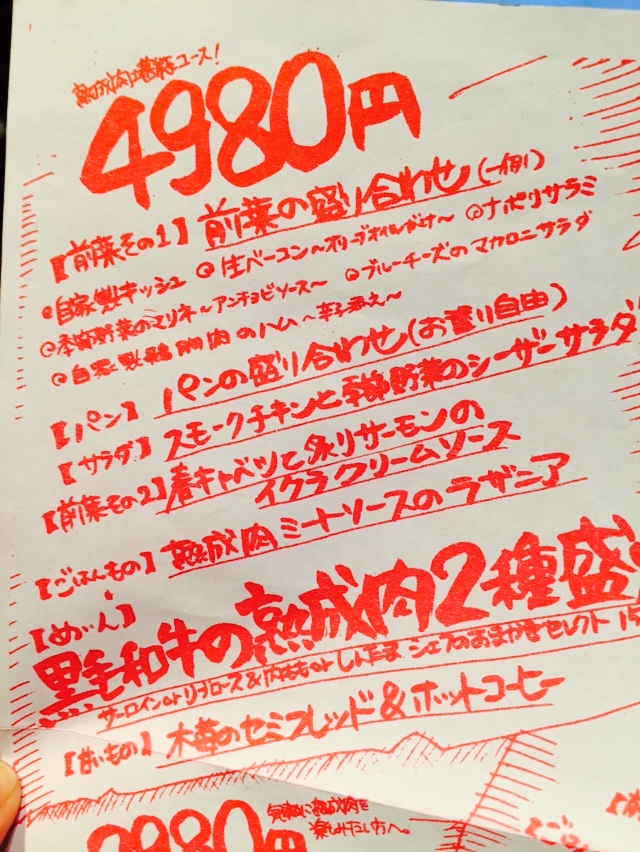 熟成肉を堪能コース！
4980円
【前菜その1】前菜の盛り合わせ(一例)
◎自家製キッシュ ◎生ベーコン〜オリーブオイルがけ〜 ◎ナポリサラミ
◎季節野菜のマリネ〜アンチョビソース〜 ◎ブルーチーズのマカロニサラダ
◎自家製鶏胸肉のハム〜辛子添え〜
【パン】パンの盛り合わせ(お替り自由)
【サラダ】スモークチキンと季節野菜のシーザーサラダ
【前菜その2】春キャベツと炙りサーモンの
イクラクリームソース
【ごはんもの】熟成肉ミートソースのラザニア
【めいん】
黒毛和牛の熟成肉2種盛
サーロインorリブロース&内ももorしんたま シェフのおまかせセレクト 15
【甘いもの】木苺のセミフレッド&ホットコーヒー
2980円
気軽に熟成肉を
楽しみたい方へ。